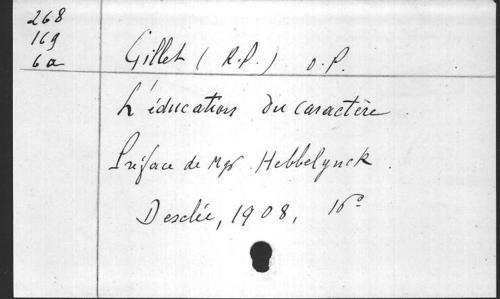 268
169
6a
Gillet (R.P.) O.P.
L'éducation du caractère.
Préface de Mgr Hebbelynck.
Desclée, 1908, 16°